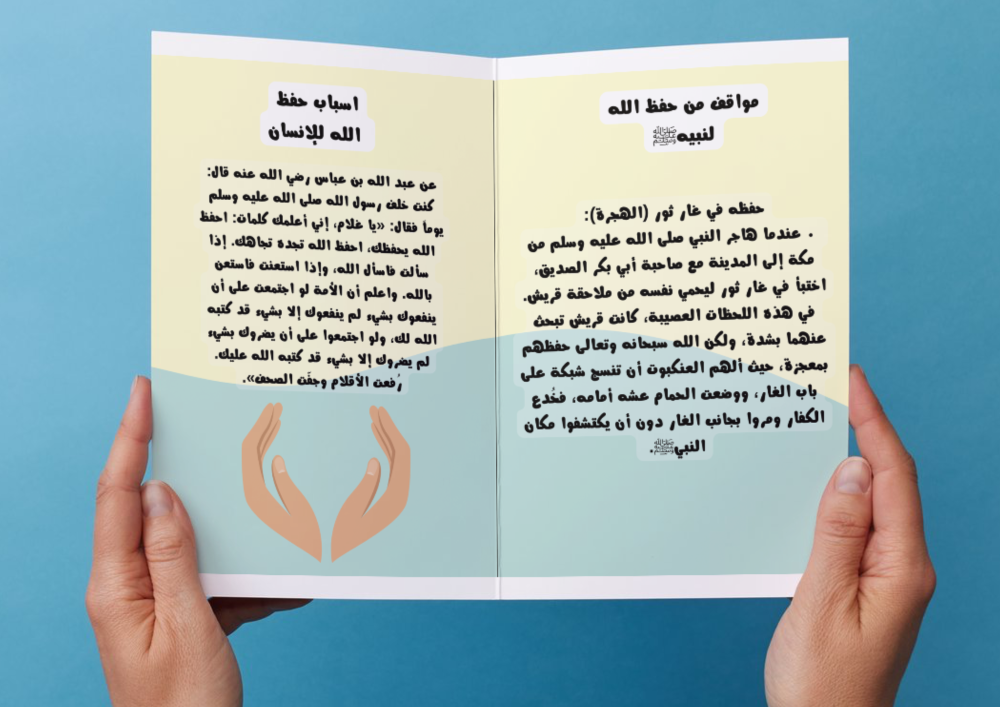 مواقف من حفظ الله
لنبيه ﷺ
حفظه في غار ثور (الهجرة):
. عندما هاجر النبي صلى الله عليه وسلم من
مكة إلى المدينة مع صاحبة أبي بكر الصديق،
اختبأ في غار ثور ليحمي نفسه من ملاحقة قريش.
في هذة اللحظات العصيبة، كانت قريش تبحث
عنهما بشدة، ولكن الله سبحانه وتعالى حفظهم
بمعجزة، حيث ألهم العنكبوت أن تنسج شبكة على
باب الغار، ووضعت الحمام عشه أمامه، فخُدع
الكفار ومروا بجانب الغار دون أن يكتشفوا مكان
النبي ﷺ.
اسباب حفظ
الله للإنسان
عن عبد الله بن عباس رضي الله عنه قال:
كنت خلف رسول الله صلى الله عليه وسلم
يوماً فقال: «يا غلام، إني أعلمك كلمات: احفظ
الله يحفظك، احفظ الله تجدة تجاهك. إذا
سألت فاسأل الله، وإذا استعنت فاستعن
بالله. واعلم أن الأمة لو اجتمعت على أن
ينفعوك بشيء لم ينفعوك إلا بشيء قد كتبه
الله لك، ولو اجتمعوا على أن يضروك بشيء
لم يضروك إلا بشيء قد كتبه الله عليك.
رُفعت الأقلام وجفّت الصحف».